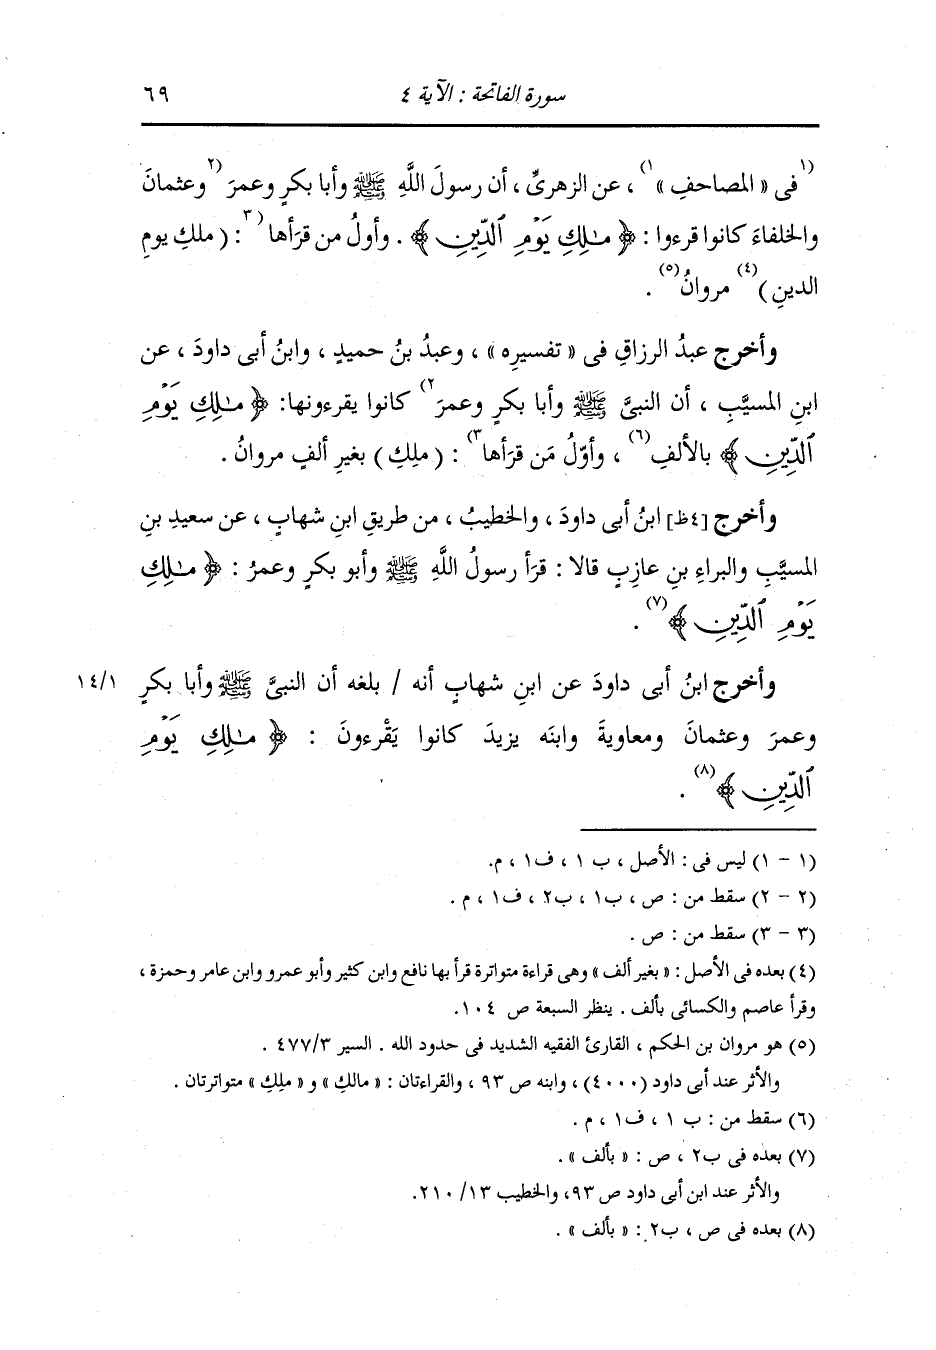 سورة الفاتحة : الآية ٤ ٦٩
(١فى « المصاحفِ »١) ، عن الزهرىِّ ، أن رسولَ اللَّهِ ﷺ وأبا بكرٍ وعمرَ (٢وعثمانَ
والخلفاءَ كانوا قرءوا : ﴿ مَـٰلِكِ يَوۡمِ ٱلدِّينِ ﴾ . وأولُ من قرَأها (٣ : ( ملكِ يومِ
الدينِ )(٤) مروانُ(٥) .
وأخرج عبدُ الرزاقِ فى « تفسيرِه » ، وعبدُ بنُ حميدٍ ، وابنُ أبى داودَ ، عن
ابنِ المسيَّبِ ، أن النبىَّ ﷺ وأبا بكرٍ وعمرَ٢) كانوا يقرءونها : ﴿ مَـٰلِكِ يَوۡمِ
ٱلدِّينِ ﴾ بالألفِ(٦) ، وأوّلُ مَن قرَأها٣) : ( ملِكِ ) بغيرِ ألفٍ مروانُ .
وأخرج [٤ظ] ابنُ أبى داودَ ، والخطيبُ ، من طريقِ ابنِ شهابٍ ، عن سعيدِ بنِ
المسيَّبِ والبراءِ بنِ عازبٍ قالا : قرَأ رسولُ اللَّهِ ﷺ وأبو بكرٍ وعمرُ : ﴿ مَـٰلِكِ
يَوۡمِ ٱلدِّينِ ﴾(٧) .
وأخرج ابنُ أبى داودَ عن ابنِ شهابٍ أنه / بلغه أن النبىَّ ﷺ وأبا بكرٍ ١٤/١
وعمرَ وعثمانَ ومعاويةَ وابنَه يزيدَ كانوا يَقْرءونَ : ﴿ مَـٰلِكِ يَوۡمِ
ٱلدِّينِ ﴾(٨) .
(١ - ١) ليس فى : الأصل ، ب ١ ، ف١ ، م.
(٢ - ٢) سقط من : ص ، ب١ ، ب٢ ، ف١ ، م .
(٣ - ٣) سقط من : ص .
(٤) بعده فى الأصل : « بغير ألف » وهى قراءة متواترة قرأ بها نافع وابن كثير وأبو عمرو وابن عامر وحمزة ،
وقرأ عاصم والكسائى بألف . ينظر السبعة ص ١٠٤.
(٥) هو مروان بن الحكم ، القارئ الفقيه الشديد فى حدود الله . السير ٤٧٧/٣ .
والأثر عند أبى داود (٤٠٠٠) ، وابنه ص ٩٣ ، والقراءتان : « مالكِ » و « ملِكِ » متواترتان .
(٦) سقط من : ب ١ ، ف١ ، م .
(٧) بعده فى ب٢ ، ص : « بألف » .
والأثر عند ابن أبى داود ص ٩٣، والخطيب ١٣/ ٢١٠.
(٨) بعده فى ص ، ب٢ : « بألف » .